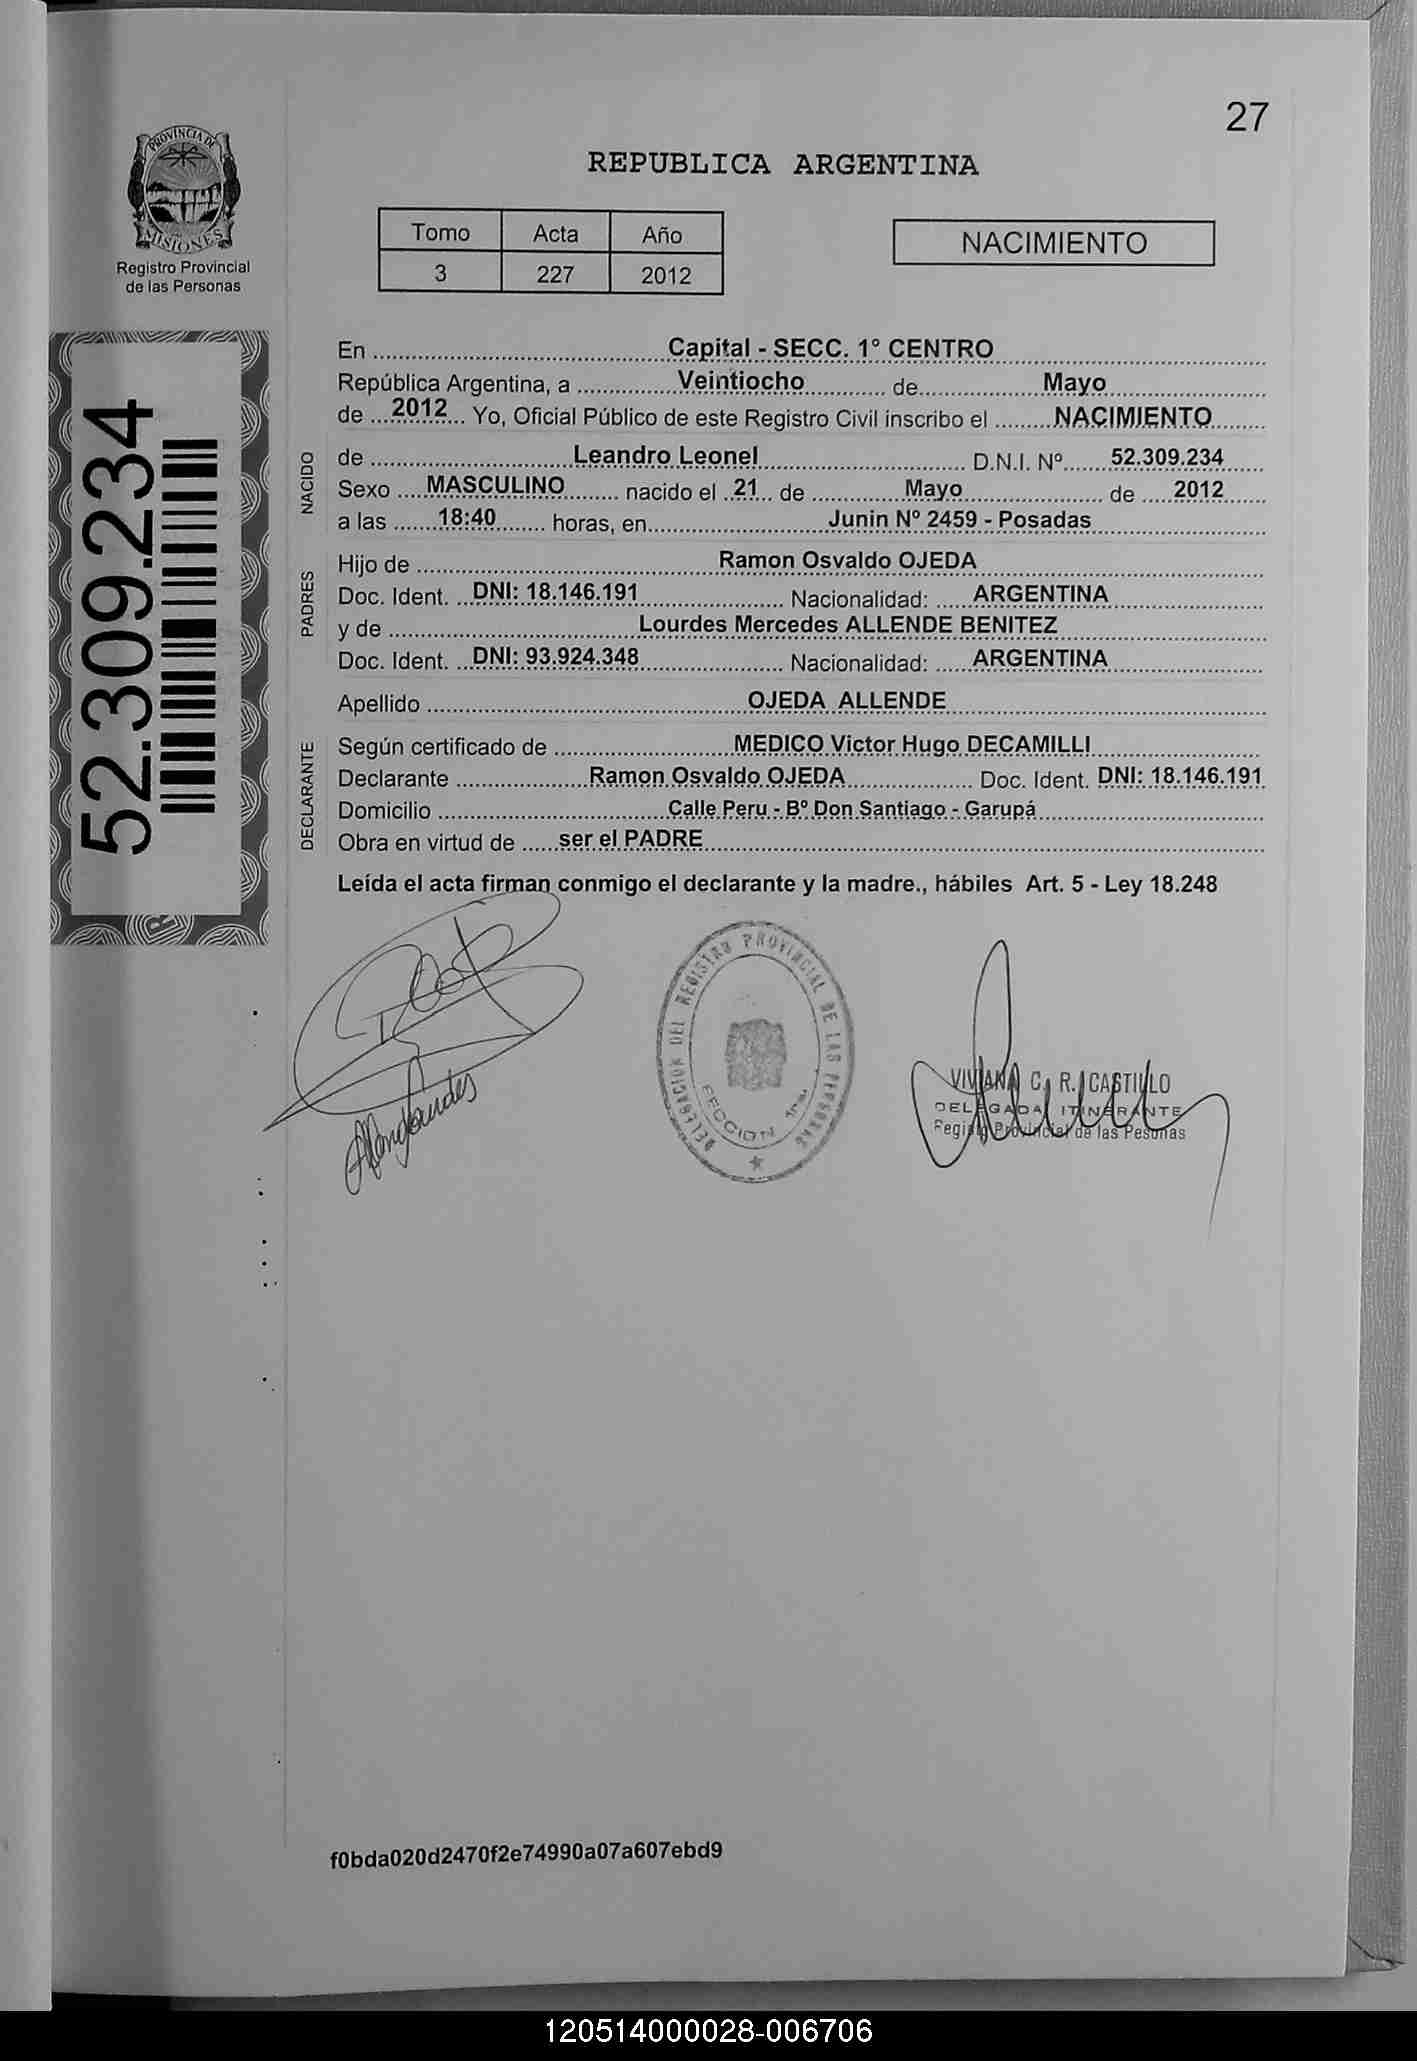 27
PROVINCIA DE
MISIONES
Registro Provincial
de las Personas
REPUBLICA ARGENTINA
Tomo Acta Año
3 227 2012
NACIMIENTO
52.309.234
En Capital - SECC. 1° CENTRO
República Argentina, a Veintiocho de Mayo
de 2012 Yo, Oficial Público de este Registro Civil inscribo el NACIMIENTO
NACIDO
de Leandro Leonel D.N.I. Nº 52.309.234
Sexo MASCULINO nacido el 21 de Mayo de 2012
a las 18:40 horas, en Junin Nº 2459 - Posadas
PADRES
Hijo de Ramon Osvaldo OJEDA
Doc. Ident. DNI: 18.146.191 Nacionalidad: ARGENTINA
y de Lourdes Mercedes ALLENDE BENITEZ
Doc. Ident. DNI: 93.924.348 Nacionalidad: ARGENTINA
Apellido OJEDA ALLENDE
DECLARANTE
Según certificado de MEDICO Victor Hugo DECAMILLI
Declarante Ramon Osvaldo OJEDA Doc. Ident. DNI: 18.146.191
Domicilio Calle Peru - Bº Don Santiago - Garupá
Obra en virtud de ser el PADRE
Leída el acta firman conmigo el declarante y la madre., hábiles Art. 5 - Ley 18.248
DELEGACION DEL REGISTRO PROVINCIAL DE LAS PERSONAS
SECCION
VIVIANA C. R. CASTILLO
DELEGADA ITINERANTE
Registro Provincial de las Pesonas
f0bda020d2470f2e74990a07a607ebd9
120514000028-006706